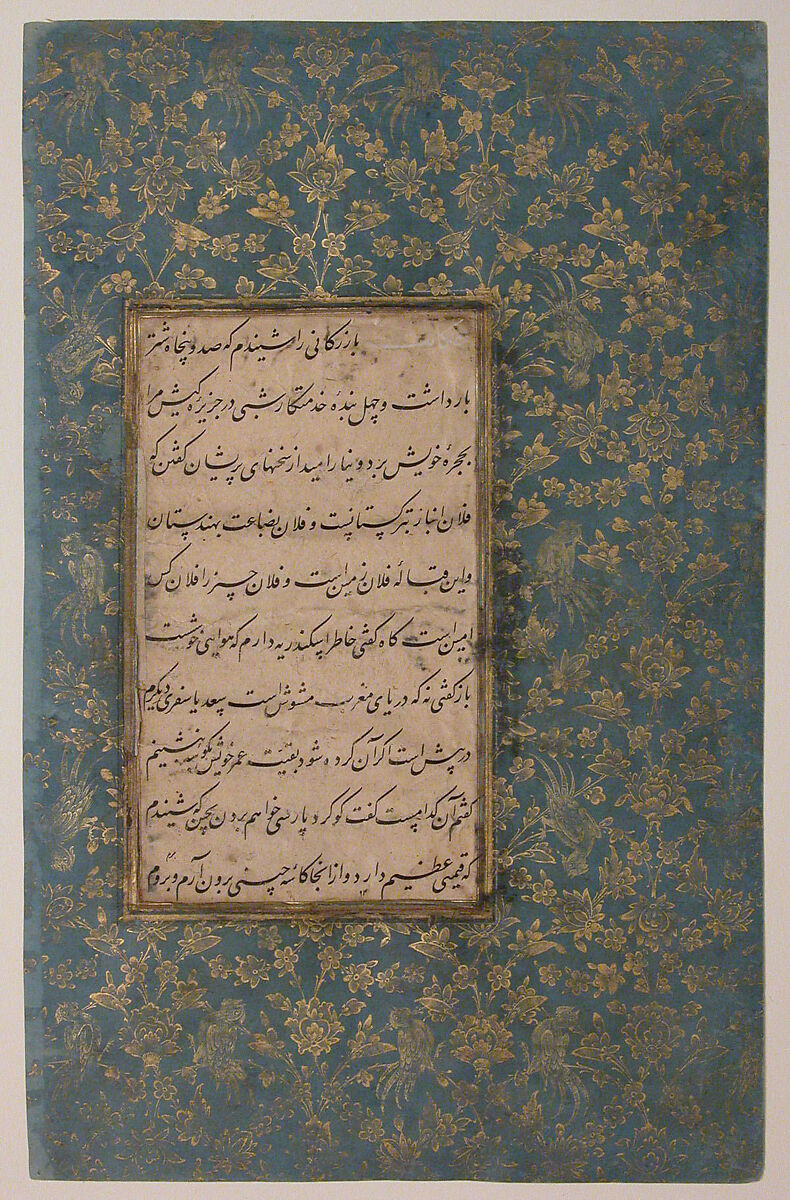 بازرگانی را شنیدم که صد و پنجاه شتر
بار داشت و چهل بنده خدمتکار شبی در جزیره کیش مرا
بحجرهٔ خویش برد و نیارامید از سخنهای پریشان گفتن که
فلان انبازم بترکستانست و فلان بضاعت بهندستان
و این قبالهٔ فلان زمین است و فلان چیز را فلان کس
امین است گاه گفتی خاطر اسکندریه دارم که هوایی خوشست
باز گفتی نه که دریای مغرب مشوش است سعدیا سفری دیگرم
در پیش است اگر آن کرده شود بقیت عمر خویش بگوشه بنشینم
گفتم آن کدامست گفت گوگرد پارسی خواهم بردن بچین که شنیدم
که قیمتی عظیم دارد و از انجا کاسهٔ چینی بروم آرم و